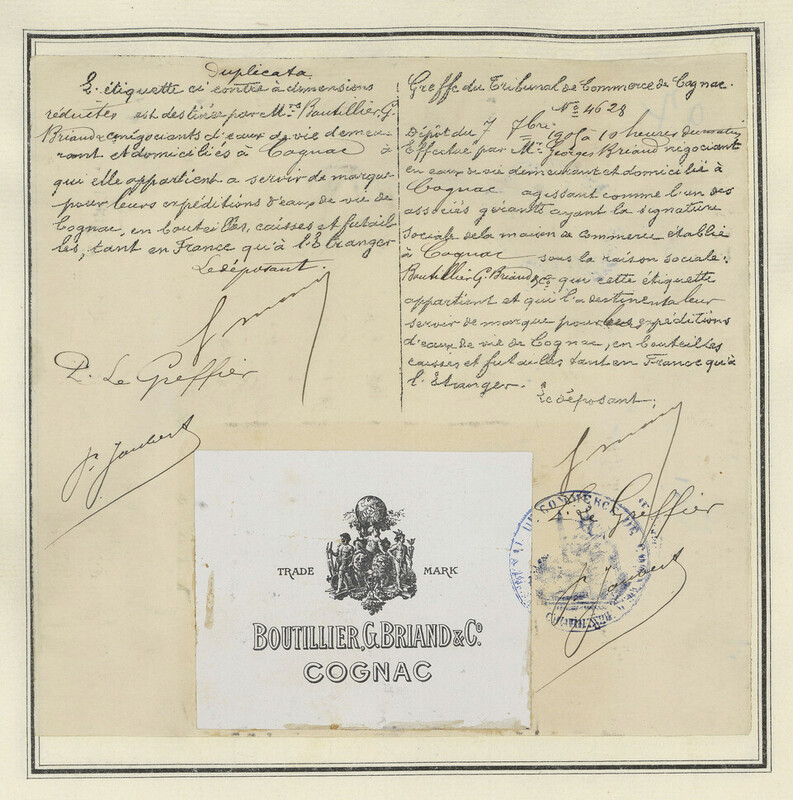 Duplicata
L'étiquette ci contre à dimensions
réduites est destinée par Mrs Boutillier, G.
Briand & Co négociants d'eaux de vie demeu-
rant et domiciliés à Cognac à
qui elle appartient a servir de marque
pour leurs expéditions d'eaux de vie de
Cognac, en bouteilles, caisses et futail
les, tant en France qu'à l'Étranger
Le déposant.
P. Le Greffier
P. Joubert
Greffe du Tribunal de Commerce de Cognac.
No 4628
Dépôt du 7 7bre à 10 heures du matin
Effectué par Mr Georges Briand négociant
en eaux de vie demeurant et domicilié à
Cognac agissant comme l'un des
associés gérants ayant la signature
sociale de la maison de commerce établie
à Cognac sous la raison sociale:
Boutillier G. Briand & Co que cette étiquette
appartient et qu'il a destine à leur
servir de marque pour les expéditions
d'eaux de vie de Cognac, en bouteilles
caisses et futailles tant en France qu'à
l'Étranger.
Le déposant,
P. Le Greffier
P. Joubert
COMMERCE DE
TRADE MARK
BOUTILLIER, G. BRIAND & Co
COGNAC